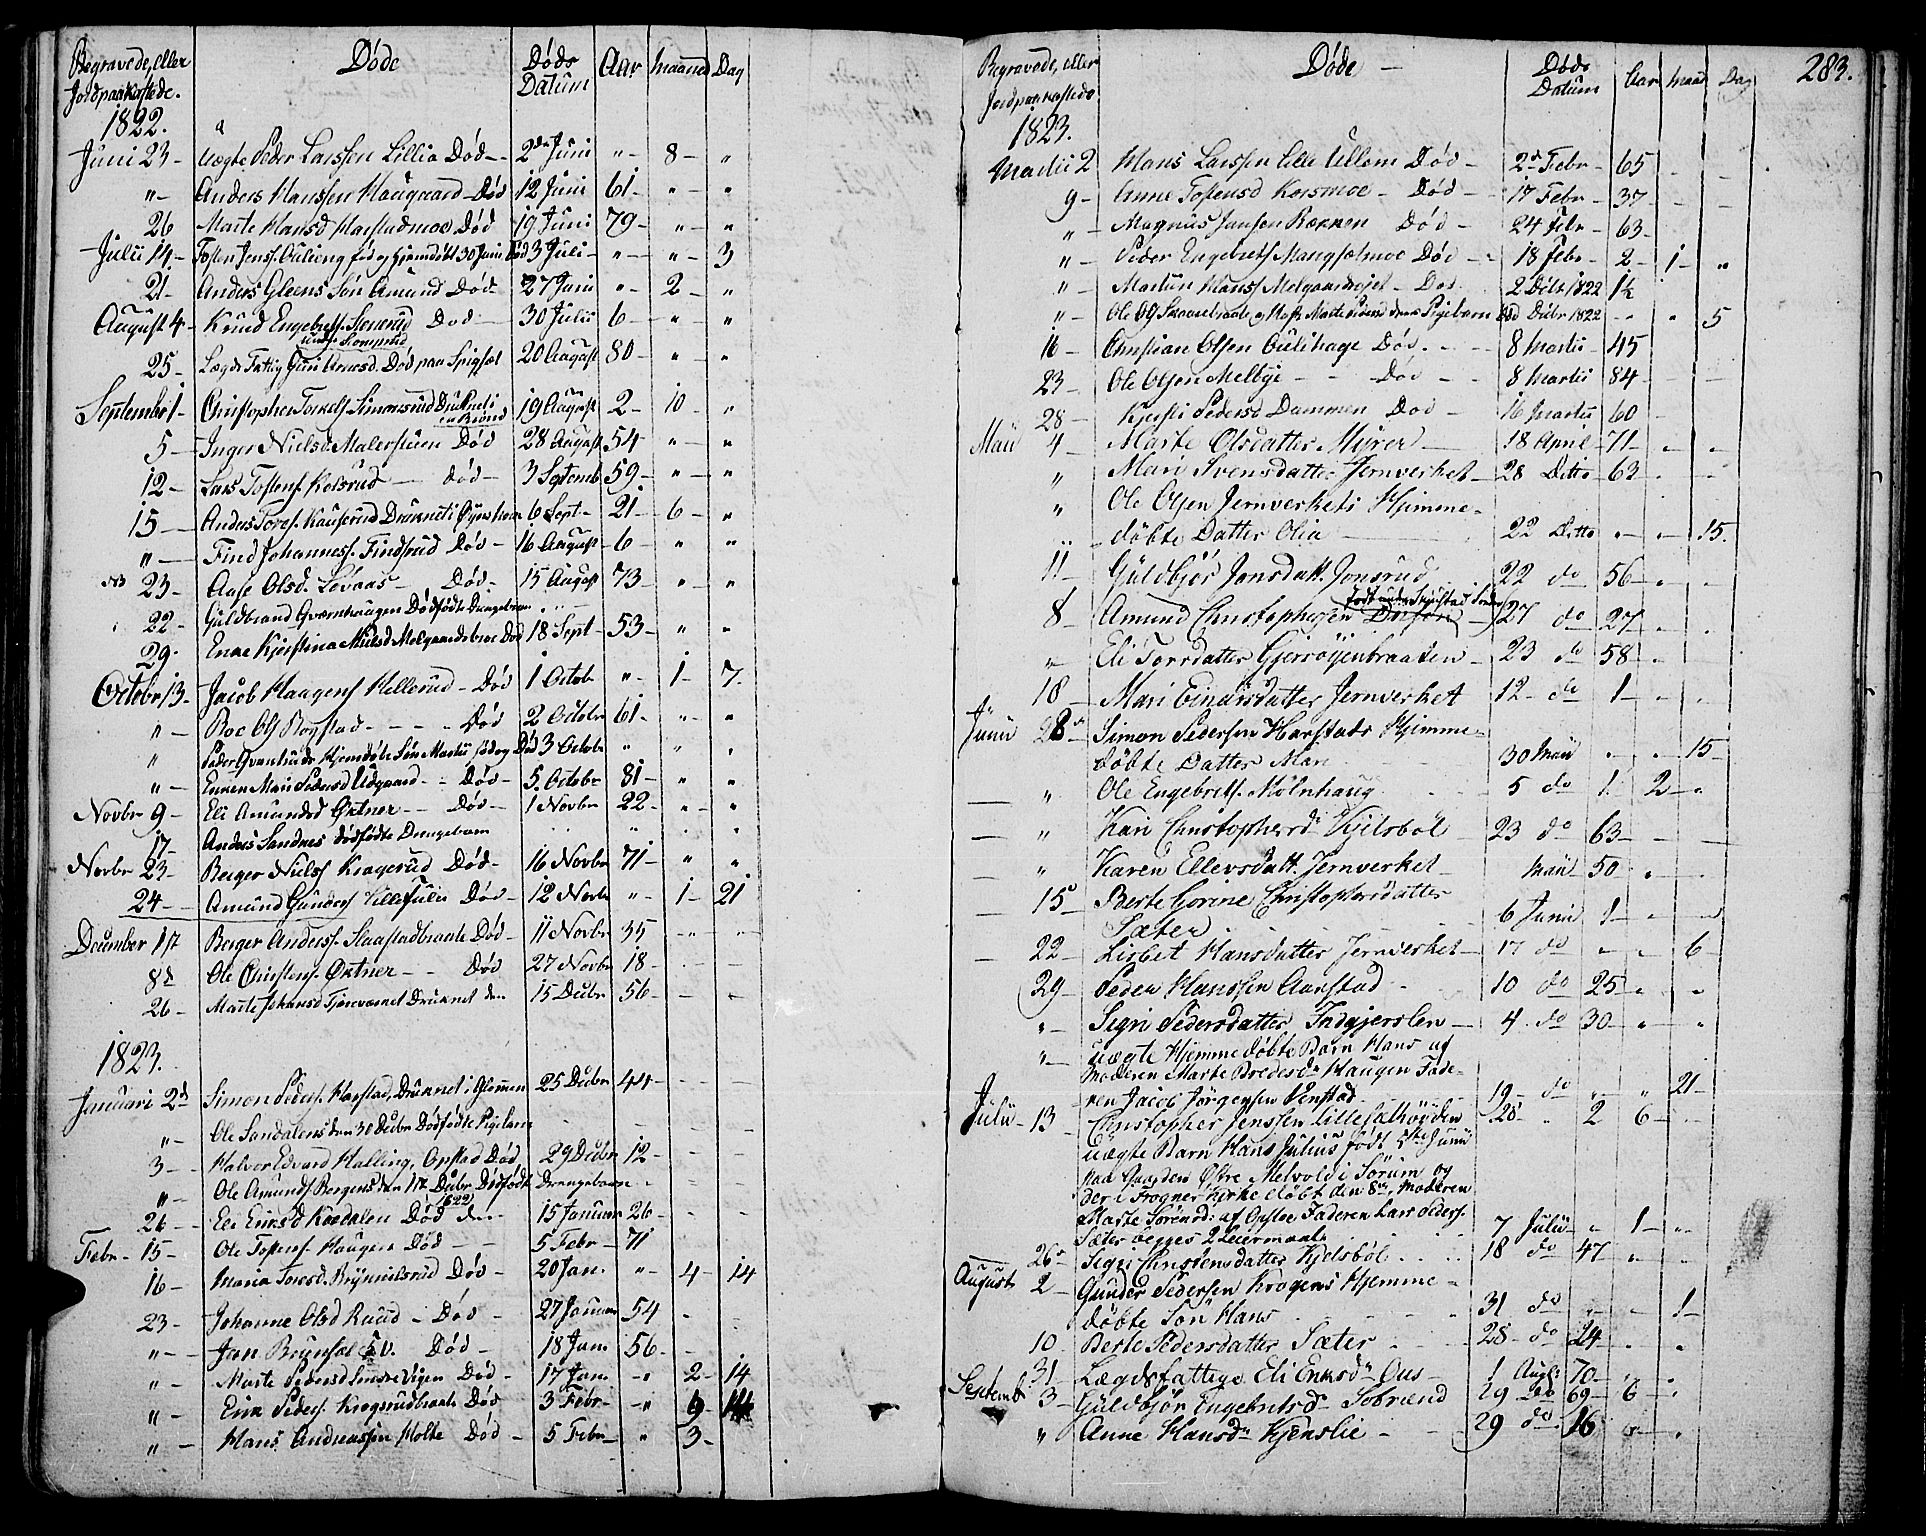 Begravede, eller Døde Døds Aar maaned Dag
Jordpaakastede. Datum
1822.
Juni 23 - Uægte Peder Larssen Lillia Død - 2den Juni " 8 - "
" - Anders Hanssen Haugaard Død 12 Juni 61 - " - "
26 Marte Hansd Harstadmoe Død 19 Juni 79 - " - "
Julii 14 - Tosten Jenss. født og hjemdøbt 30 Juni Død 3 Juli - " - " - 3
21 - Anders Gleens Søn Amund Død 27 Juni " - 2 - "
August 4 - Knud Engebrets. Død 30 Julii 6 - " - "
25 - Lægds Fattig Guri Arnesd. Død paa Spigset 20 August 80 - " - "
Septembr 1 - Christopher Torkels. Simonsrud Druknet i en Brønd 19 August 2 - 10 - "
5 - Inger Nielsd. Malerstuen Død 28 August 54 - " - "
12 - Lars Tostens. Kolsrud - død - 3 Septemb 59 - " - "
15 - Anders Tores. Kauserud Druknet i Øyeren 6 Sept - 21 - 6 - "
" - Find Johanness. Findsrud Død - 16 August 6 - " "
NB 23 - Aase Olsd. Løvaas - Død - 15 August 73 - " - "
22 - Guldbrand Qvernhaugen Dødfødte Drengebarn
29 - Enke Kjerstina Nielsd Melgaardsbraae Død 18 Sept - 53 - " "
Octobr 13 - Jacob Haagens. Hellerud - Død 1 Octob " - 1 - 7
" - Roe Ols. Rogstad - - - Død 2 Octobr 61 - " - "
" Peder Hjemdøbte Søn Martii fød og Død 3 Octobr " " "
" - Enken Mari Pedersd Udgaard - Død - 5 Octobr 81 - " - "
Novbr 9 - Eli Amundsd Østner - - Død - 1 Novbr 22 - " - "
17 - Anders Sandnes dødfødte Drengebarn
Novbr 23 - Berger Niels. Kragerud Død - 16 Novbr 71 - " "
24 - Amund Gunders. Lillejulia Død - 12 Novbr " - 1 - 21
December 1st Berger Anders. Slaastadbraate Død - 11 Novbr 35 - " -
8d Ole Christens. Østner - - Død 27 Novbr 18 -
26 - Marte Johansd Druknet den 15 Decbr 56 - - -
1823.
Januari 2d Simon Peders. Harstad, Druknet i Glommen 25 Decbr 44 - -
" - Ole Sandalens den 30 Decbr Dødfødte Pigebarn
3 - Halvor Edvard Halling, Opstad Død 29 Decbr 12 -
" - Ole Amunds. Bergens den 17 Decbr Dødfødt Drengebarn
1822
26 - Eli Eriksd Død den 15 Januar 26 -
Febr - 15 - Ole Tostens. Haugen Død - - 5 Febr - 71
16 - Maria Toresd. Brynnilsrud Død - 20 Jan. " - 4 - 14
23 - Johanne Olsd Ruud - Død - 27 Januar 54 -
" - Jan Brynsal Død - 18 Jan 56 -
" - Marte Pedersd Vigen Død - 17 Jan - " 2 - 14
" - Erik Peders. Kragsrudbraate Død 3 Febr - " 9 -
" - Hans Andreassen Holte Død - 5 Febr - " 3 -
283.
Begravede, eller Døde - Døds Aar maan Dag
Jordpaakastede Datum
1823.
Martii 2 Hans Larssen Lille Ullern Død - 2d Febr - 65
9 - Anne Tostensd Korsmoe - Død - 17 Febr - 37 -
" - Magnus Jansen Død - 24 Febr - 63 -
" - Peder Engebrets. Død - 18 Febr - 2 - 1 - "
" - Martin Hans. Melgaardsejet - Død. 2 Octb 1822 1½
" - Ole Pigebarn Død Decbr 1822 - " 5
16 - Christian Olsen Død. - - 8 Martii - 45
23 - Ole Olsen Melbye - - Død - - 8 Martii 84 -
28 - Kjersti Pedersd Dammen Død - 16 Martii 60 -
Maii 4 - Marte Olsdatter Myrer - 18 April - 71 -
" Mari Svensdatter Jernverket - 28 Ditto - 63 -
" Ole Olsen Jernverkets Hjemme-
døbte Datter Olia 22 Ditto " - " - 15
11 - Guldbjør Jonsdatt. Jonsrud 22 do 56 -
8 - Amund Christophersen 27 do 27 -
" - Eli Torsdatter Gjerrøyenbraaten - 23 do 58 -
18 - Mari Einersdatter Jernverket 12 - do 1 -
Junii 28de Simon Pedersen Harstads Hjemme-
døbte Datter Mari 30 Maii " " 15 -
" Ole Engebrets. Mölnhaug 5 do 1 2 - "
" Kari Christophersd. Kjelsböl - 23 do 63 -
" Karen Ellevsdatt. Jernverket - Maii 50 "
15 - Berte Gorine Christophersdatter
Sæter 6 Junii 1 -
22 - Lisbet Hansdatter Jernverket - 17 do " - 6 -
29 - Peder Hanssen Aarstad - 10 do 25 - " "
" - Segri Pedersdatter Indgjerslen - 4 do 30 - " "
" - uægte Hjemmedøbte Barn Hans af
Moderen Marte Bredesd. Haugen Fade-
ren Jacob Jørgensen Venstad 19 - do " - " 21 -
Julii - 13 - Christopher Jenssen Lillesælhøyden 28 " 2 6 -
Uægte Barn Hans Julius født 5te Junii
paa Gaarden Østre Melvold i Sørum og
der i Frogner Kirke døbt den 8de, Moderen
Marte Sörensd. af Opsloe Faderen Lars Peders.
Sæter begges 2 Leiermaal 7 Julii - " 1 - "
26d Segri Christensdatter Kjelsböl 18 do 47 "
August 2 - Gunder Pedersen Krogens Hjemme-
døbte Søn Hans 31 do " - 1 -
10 - Berte Pedersdatter Sæter 28 - do 24 - "
31 - Lægdsfattige Eli Eriksd. Ous - 1 Aug. 70 -
Septemb 3 - Guldbjør Engebretsd. 29 do 69 - 6 - "
" Anne Hansd. Kjenslie - 29 do 16